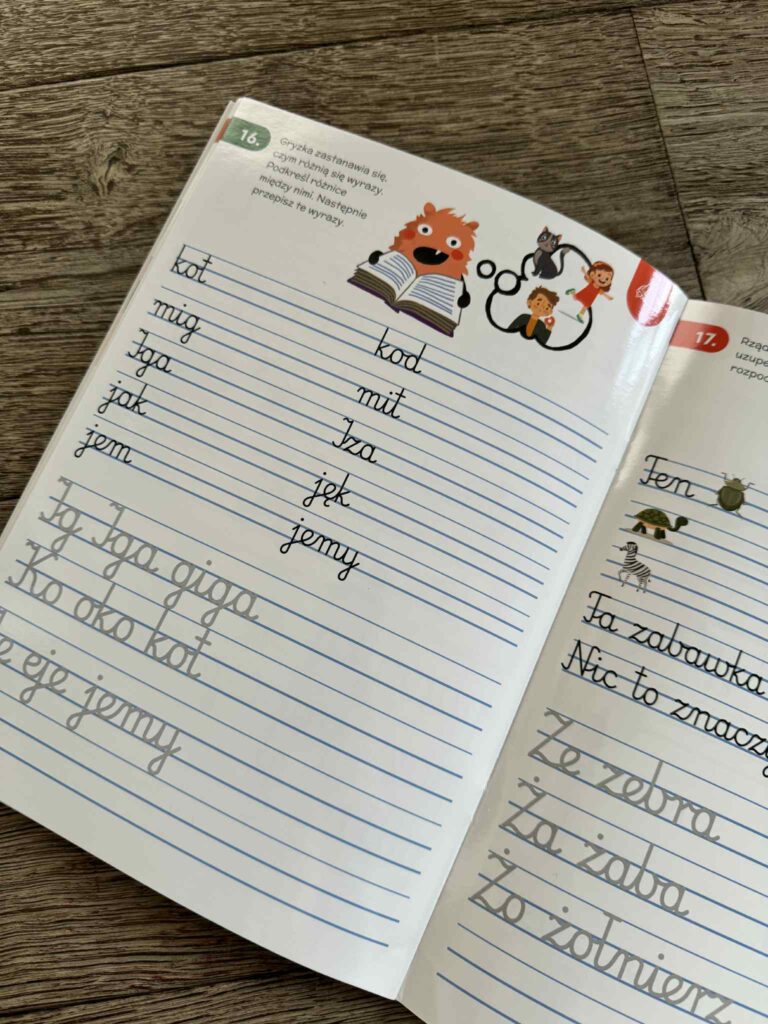 16.
Gryzka zastanawia się,
czym różnią się wyrazy.
Podkreśl różnice
między nimi. Następnie
przepisz te wyrazy.
kot kod
mig mit
Iga Iza
jak jęk
jem jemy
Ig Iga giga
Ko oko kot
eje jemy
17.
Rząd
Ten
Ta zabawka
Nic to znaczy
Ze zebra
Ża żaba
Żo żołnierz